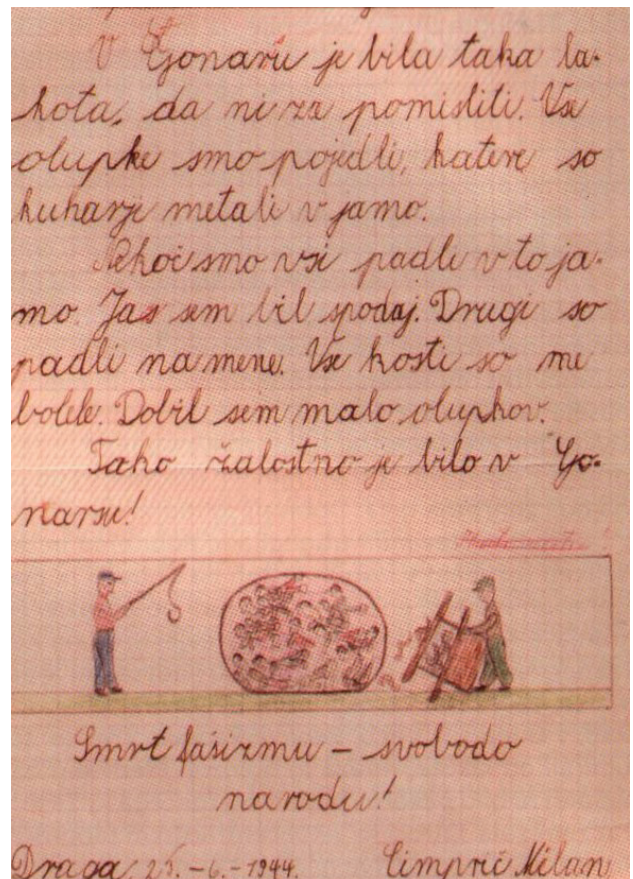 V Gonarsu je bila taka la-
kota, da ni za pomisliti. Vse
olupke smo pojedli, katere so
kuharje metali v jamo.
Nekoč smo vsi padli v to ja-
mo. Jas sem bil spodaj. Drugi so
padli na mene. Vse kosti so me
bolele. Dobil sem malo olupkov.
Tako žalostno je bilo v Go-
narsu!
Smrt fašizmu – svobodo
narodu!
Draga, 25.-6.-1944. Cimprič Milan